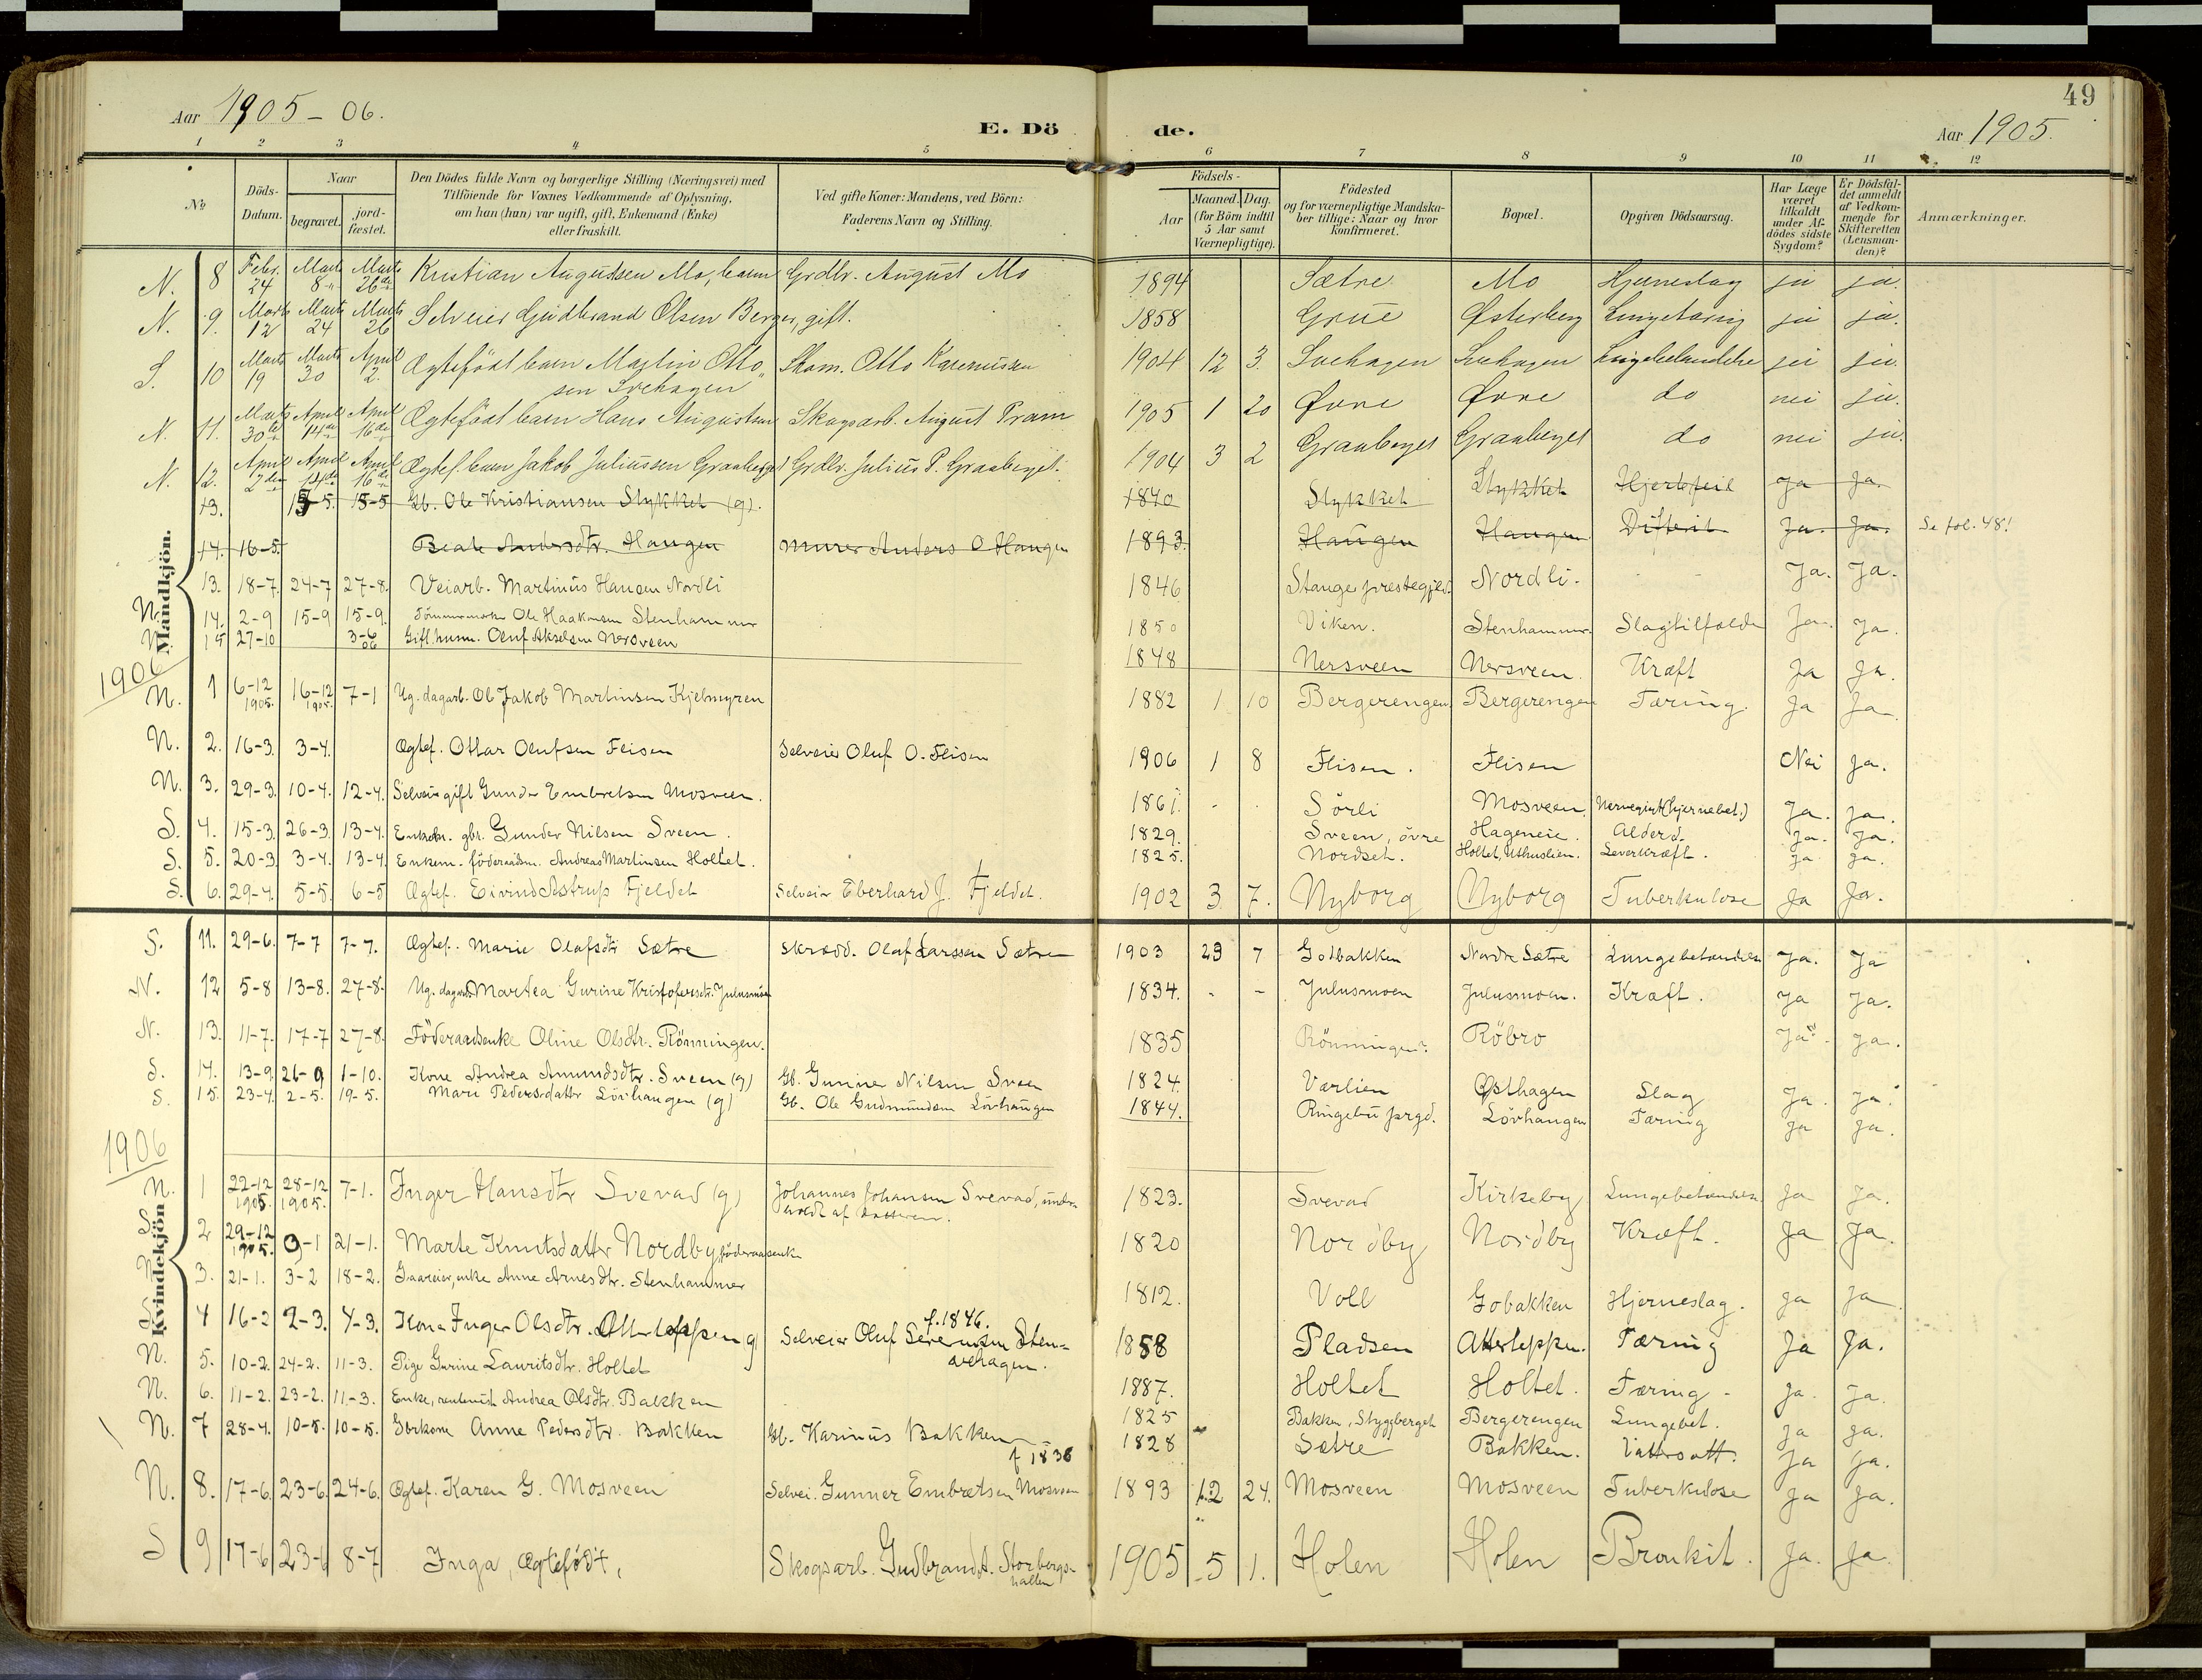 49
Aar 1905-06.
E. Dö de.
Aar 1905.
1 2 3 4 5 6 7 8 9 10 11 12
No
Döds-Datum.
Naar
begravet.
jord-fæstet.
Den Dödes fulde Navn og borgerlige Stilling (Næringsvei) med
Tilföiende for Voxnes Vedkommende af Oplysning,
om han (hun) var ugift, gift, Enkemand (Enke)
eller fraskilt.
Ved gifte Koner: Mandens, ved Börn:
Faderens Navn og Stilling.
Födsels-
Aar
Maaned. Dag.
(for Börn indtil
5 Aar samt
Værnepligtige).
Födested
og for værnepligtige Mandska-
ber tillige: Naar og hvor
konfirmeret.
Bopæl.
Opgiven Dödsaarsag.
Har Læge
været
tilkaldt
under Af-
dödes sidste
Sygdom?
Er Dödsfal-
det anmeldt
af Vedkom-
mende for
Skifteretten
(Lensman-
den)?
Anmærkninger.
Mandkjön.
N. 8 Febr. 24 Marts 8 Marts 26de Kristian Augudsen Mo, barn Grdbr. August Mo 1894 Sætre Mo Hjerneslag ja ja.
N. 9. Marts 12 Marts 24 Marts 26 Selveier Gudbrand Olsen Berger, gift. 1858 Grue Østerberg Lungetæring ja ja.
S. 10 Marts 19 Marts 30 April 2. Ægtefödt barn Martin Otto-
sen Svehagen Skom. Otto Karenussen 1904 12 3. Svehagen Svehagen Lungebetændelse ja ja.
N. 11. Marts 30te April 14de April 16de Ægtefödt barn Hans Augustsen Skogsarb. August Pram 1905 1 20 Øvre Øvre do nei ja.
N. 12. April 2den April 14de April 16de Ægtef. barn Jakob Juliussen Graaberget Grdbr. Julius P. Graaberget. 1904 3 2 Graaberget Graaberget do nei ja.
13. 15-5. 15-5 Gb. Ole Kristiansen Stykket (g). 1840 Stykket Stykket Hjertefeil Ja Ja.
14. 16-5. Beate Andersdtr. Haugen Murer Anders O Haugen 1893. Haugen Haugen Difterit. Ja. Ja. Se fol. 48!
13. 18-7. 24-7 27-8. Veiarb. Martinus Hansen Nordli 1846 Stange prestegjeld. Nordli. - - Ja. Ja.
N. 14. 2-9 15-9 15-9. Ole Haakonsen Stenhammer 1850 Viken. Stenhammer. Slagtilfælde Ja. Ja.
N. 15 27-10 3-6 06 Gift husm. Oluf Akselsen Nersveen 1848 Nersveen Nersveen. Kræft Ja Ja.
1906
N. 1 6-12 1905. 16-12 1905. 7-1 Ug. dagarb. Ol Jakob Martinsen Kjelmyren 1882 1 10 Bergerengen Bergerengen Tæring. Ja Ja.
N. 2. 16-3. 3-4. Ægtef. Ottar Olufsen Flisen Selveier Oluf O. Flisen 1906 1 8 Flisen. Flisen Nei Ja.
N. 3. 29-3. 10-4. 12-4. Selveier gift Gunder Embretsen Mosveen. 1861. - - Sörli Mosveen (hjernebet.) Ja. Ja.
S. 4. 15-3. 26-3. 13-4. Enkem. gbr. Gunder Nilsen Sveen. 1829. Sveen, övre Hageneie. Alderd. Ja. Ja.
S. 5. 20-3. 3-4. 13-4. Enkem. föderaadsm. Andreas Martinsen Holtet. 1825. Nordset. Holtet, Uthuslien. Leverkræft. Ja Ja.
S. 6. 29-4. 5-5. 6-5 Ægtef. Eivind Astrup Fjeldet Selveier Eberhard J. Fjeldet. 1902 3. 7. Nyborg Nyborg Tuberkulose Ja Ja.
Kvindekjön
S. 11. 29-6. 7-7 7-7. Ægtef. Marie Olafsdtr Sætre Skrædd. Olaf Larssen Sætre 1903 7 Gotbakken Nordre Sætre Lungebetændelse Ja. Ja
N. 12 5-8 13-8. 27-8. Ug. Martea Gurine Kristofersdtr. Julusmoen 1834. - - Julusmoen Julusmoen. Kræft. Ja Ja.
N. 13. 11-7. 17-7 27-8. Föderaadsenke Oline Olsdtr. Rönningen. 1835 Rönningen? Röbro Ja. Ja.
S. 14. 13-9. 26-9 1-10. Kone Andrea Amundsdtr. Sveen (g) Gb. Gunner Nilsen Sveen 1824. Værlien Østhagen Slag Ja. Ja.
S. 15. 23-4. 2-5. 19-5. Mari Pedersdatter Lövhaugen (g) Gb. Ole Gudmundsen Lövhaugen 1844. Ringebu prgd. Lövhaugen Tæring Ja Ja.
1906
N. 1 22-12 1905. 28-12 1905. 7-1. Inger Hansdtr Svevad (g) Johannes Johansen Svevad, under-
holdt af datteren. 1823. Svevad Kirkeby Lungebetændelse Ja Ja.
S. 2 29-12 1905. 9-1 21-1. Marte Knutsdatter Nordby, föderaadsenke 1820 Nordby Nordby Kræft. Ja Ja.
N. 3. 21-1. 3-2 18-2. Gaardeier, enke Anne Arnesdtr. Stenhammer 1812. Voll Gobakken Hjerneslag. Ja Ja
S. 4 16-2 2-3. 4-3. Kone Inger Olsdtr. Atterleppen (g) Selveier Oluf Sörensen Sten-
ehagen. f. 1846. 1858 Pladsen Atterleppen. Tæring Ja Ja.
N. 5. 10-2. 24-2. 11-3. Pige Gurine Lauritsdtr. Holtet 1887. Holtet Holtet. Tæring - Ja. Ja.
N. 6. 11-2. 23-2. 11-3. Enke, rentenist Andrea Olsdtr. Bakken 1825 Bakken, Stygberget Bergerengen Lungebet. Ja Ja.
N. 7 28-4. 10-5. 10-5. Gbrkone Anne Pedersdtr. Bakken Gb. Karinus Bakken f 1836 1828 Sætre Bakken. Vattersott. Ja Ja.
N. 8. 17-6. 23-6. 24-6. Ægtef. Karen G. Mosveen Selvei. Gunner Embretsen Mosveen 1893 12 24. Mosveen Mosveen Tuberkulose Ja Ja.
S 9 17-6 23-6 8-7 Inga, Ægtefödt, Skogsarb. Gudbrand A. Storbergs-
hallen 1905 5 1. Holen Holen Bronkit. Ja. Ja.